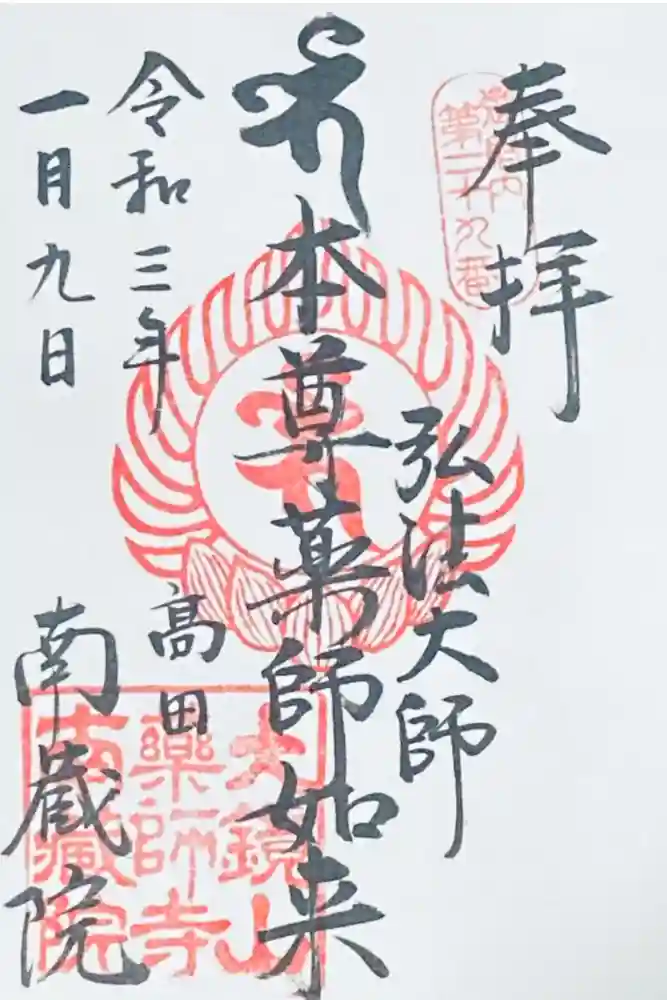 奉拝
第二十九番
弘法大師
本尊薬師如来
令和三年
一月九日
高田
南蔵院
大鏡山
薬師寺
南蔵院